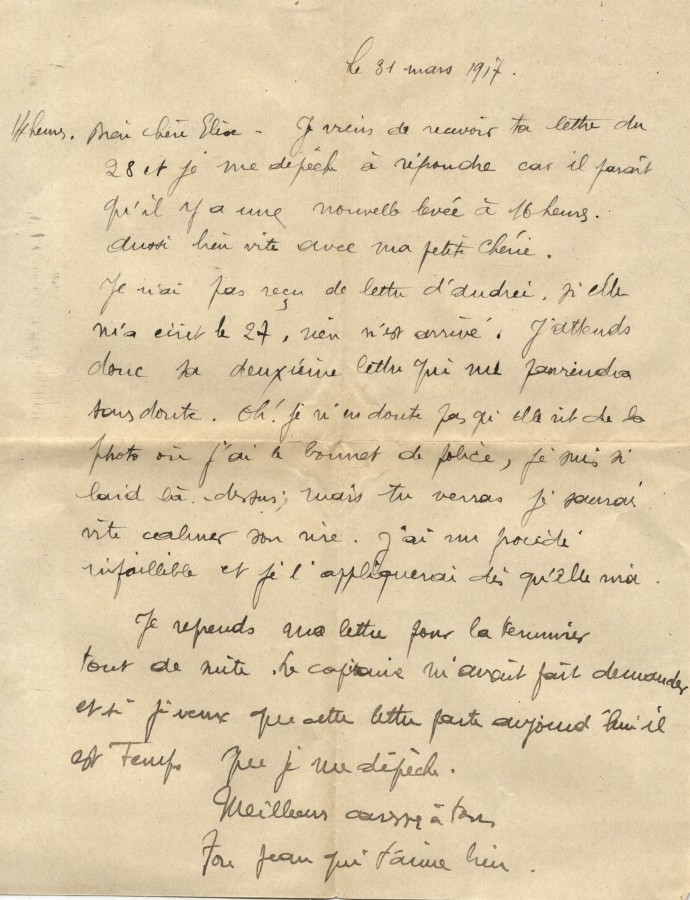 Le 31 mars 1917.
14 heures. Bien chère Elise - Je viens de recevoir ta lettre du
28 et je me dépêche à répondre car il paraît
qu'il y a une nouvelle levée à 16 heures.
Aussi bien vite avec ma petite chérie.
Je n'ai pas reçu de lettre d'Andrée, si elle
m'a écrit le 27, rien n'est arrivé. J'attends
donc sa deuxième lettre qui me parviendra
sans doute. Oh! je n'en doute pas qu'elle rit de la
photo où j'ai le bonnet de police, je suis si
laid là-dessus; mais tu verras je saurai
vite calmer son rire. J'ai un procédé
infaillible et je l'appliquerai dès qu'elle rira.
Je reprends ma lettre pour la terminer
tout de suite. Le capitaine m'avait fait demander
et si je veux que cette lettre parte aujourd'hui il
est temps que je me dépêche.
Meilleurs à tous
Ton Jean qui t'aime bien.